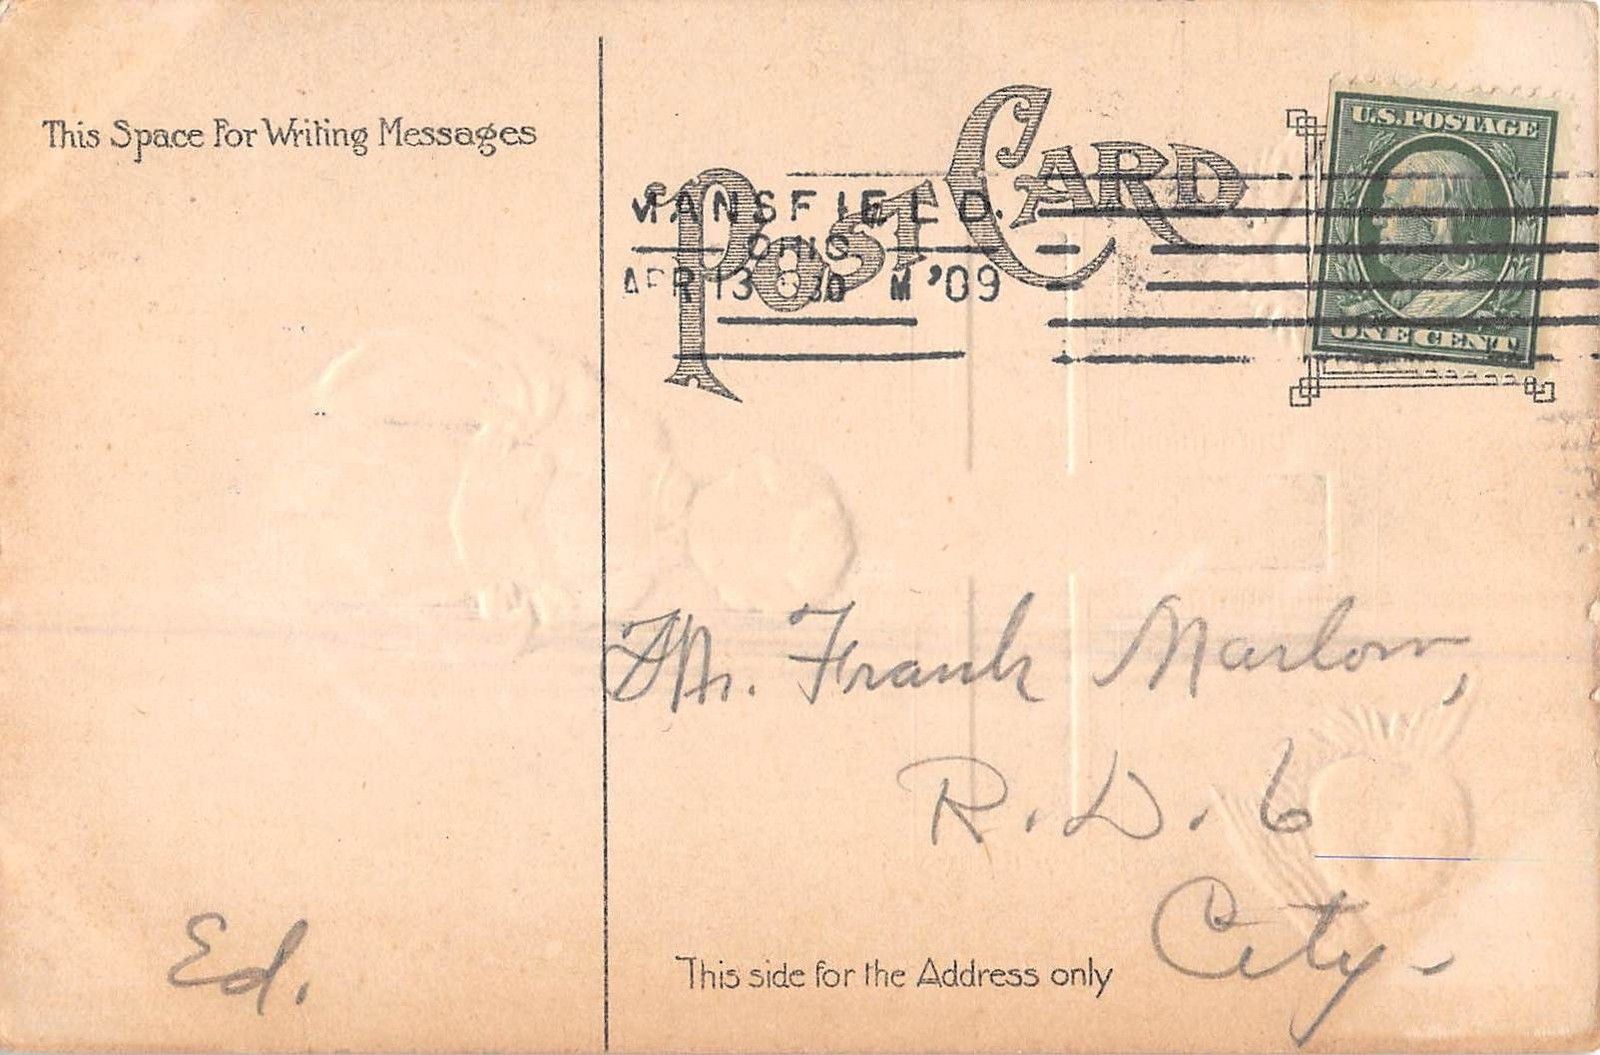 This Space For Writing Messages
POST CARD
MANSFIELD.
OHIO
APR 13 8 30 M '09
U.S. POSTAGE
ONE CENT
Mr. Frank Marlow,
R. D. 6
City-
Ed.
This side for the Address only